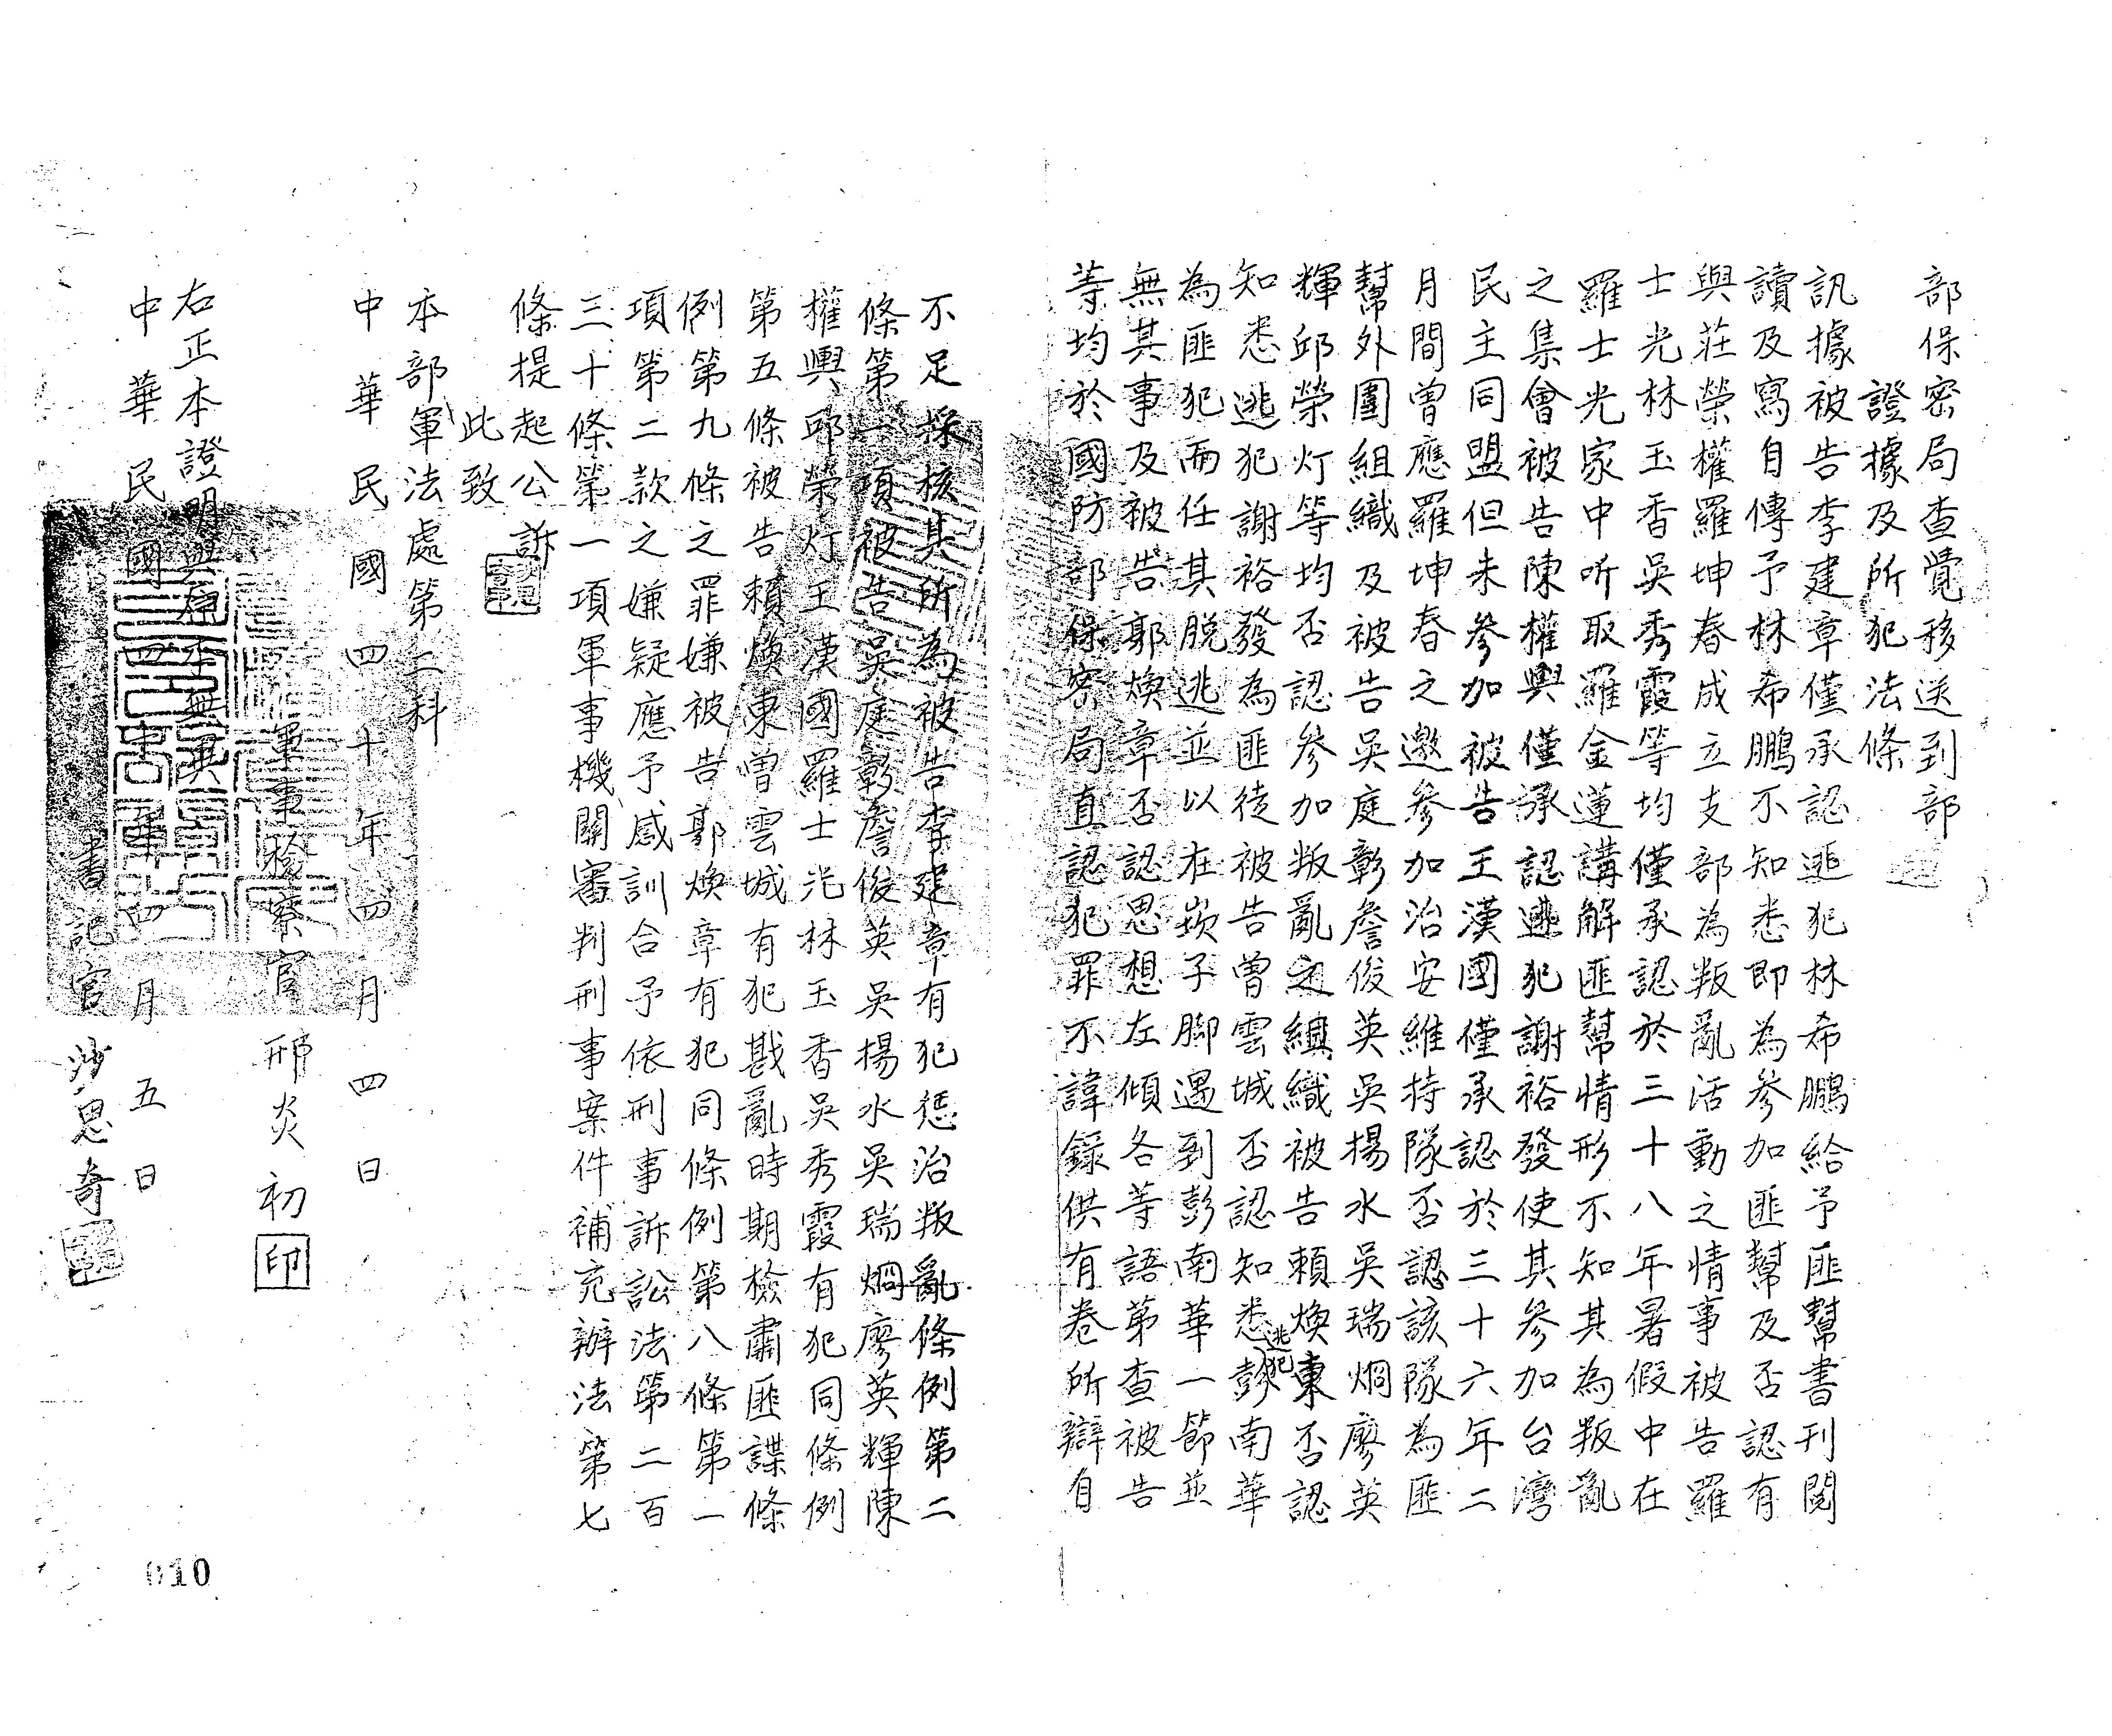 部保密局查覺移送到部
證據及所犯法條
訊據被告李建章僅承認逃犯林希鵬給予匪幫書刊閱
讀及寫自傳予林希鵬不知悉即為參加匪幫及否認有
與莊榮權羅坤春成立支部為叛亂活動之情事被告羅
士光林玉香吳秀霞等均僅承認於三十八年暑假中在
羅士光家中听取羅金蓮講解匪幫情形不知其為叛亂
之集會被告陳權興僅承認逃犯謝裕發使其參加台灣
民主同盟但未參加被告王漢國僅承認於三十六年二
月間曾應羅坤春之邀參加治安維持隊否認該隊為匪
幫外圍組織及被告吳庭彰詹俊英吳揚水吳瑞烱廖英
輝邱榮灯等均否認參加叛亂之組織被告賴煥東否認
知悉逃犯謝裕發為匪徒被告曾雲城否認知悉逃犯彭南華
為匪犯而任其脫逃並以在崁子脚遇到彭南華一節並
無其事及被告郭煥章否認思想左傾各等語第查被告
等均於國防部保密局直認犯罪不諱錄供有卷所辯自
不足採核其所為被告李建章有犯懲治叛亂條例第二
條第一項被告吳庭彰詹俊英吳揚水吳瑞烱廖英輝陳
權興邱榮灯王漢國羅士光林玉香吳秀霞有犯同條例
第五條被告賴煥東曾雲城有犯戡亂時期檢肅匪諜條
例第九條之罪嫌被告郭煥章有犯同條例第八條第一
項第二款之嫌疑應予感訓合予依刑事訴訟法第二百
三十條第一項軍事機關審判刑事案件補充辦法第七
條提起公訴
此致
本部軍法處第二科
中華民國四十年四月四日
軍事檢察官 邢炎初 印
右正本證明與原本無異
中華民國四十年四月五日
書記官 沙思奇
010